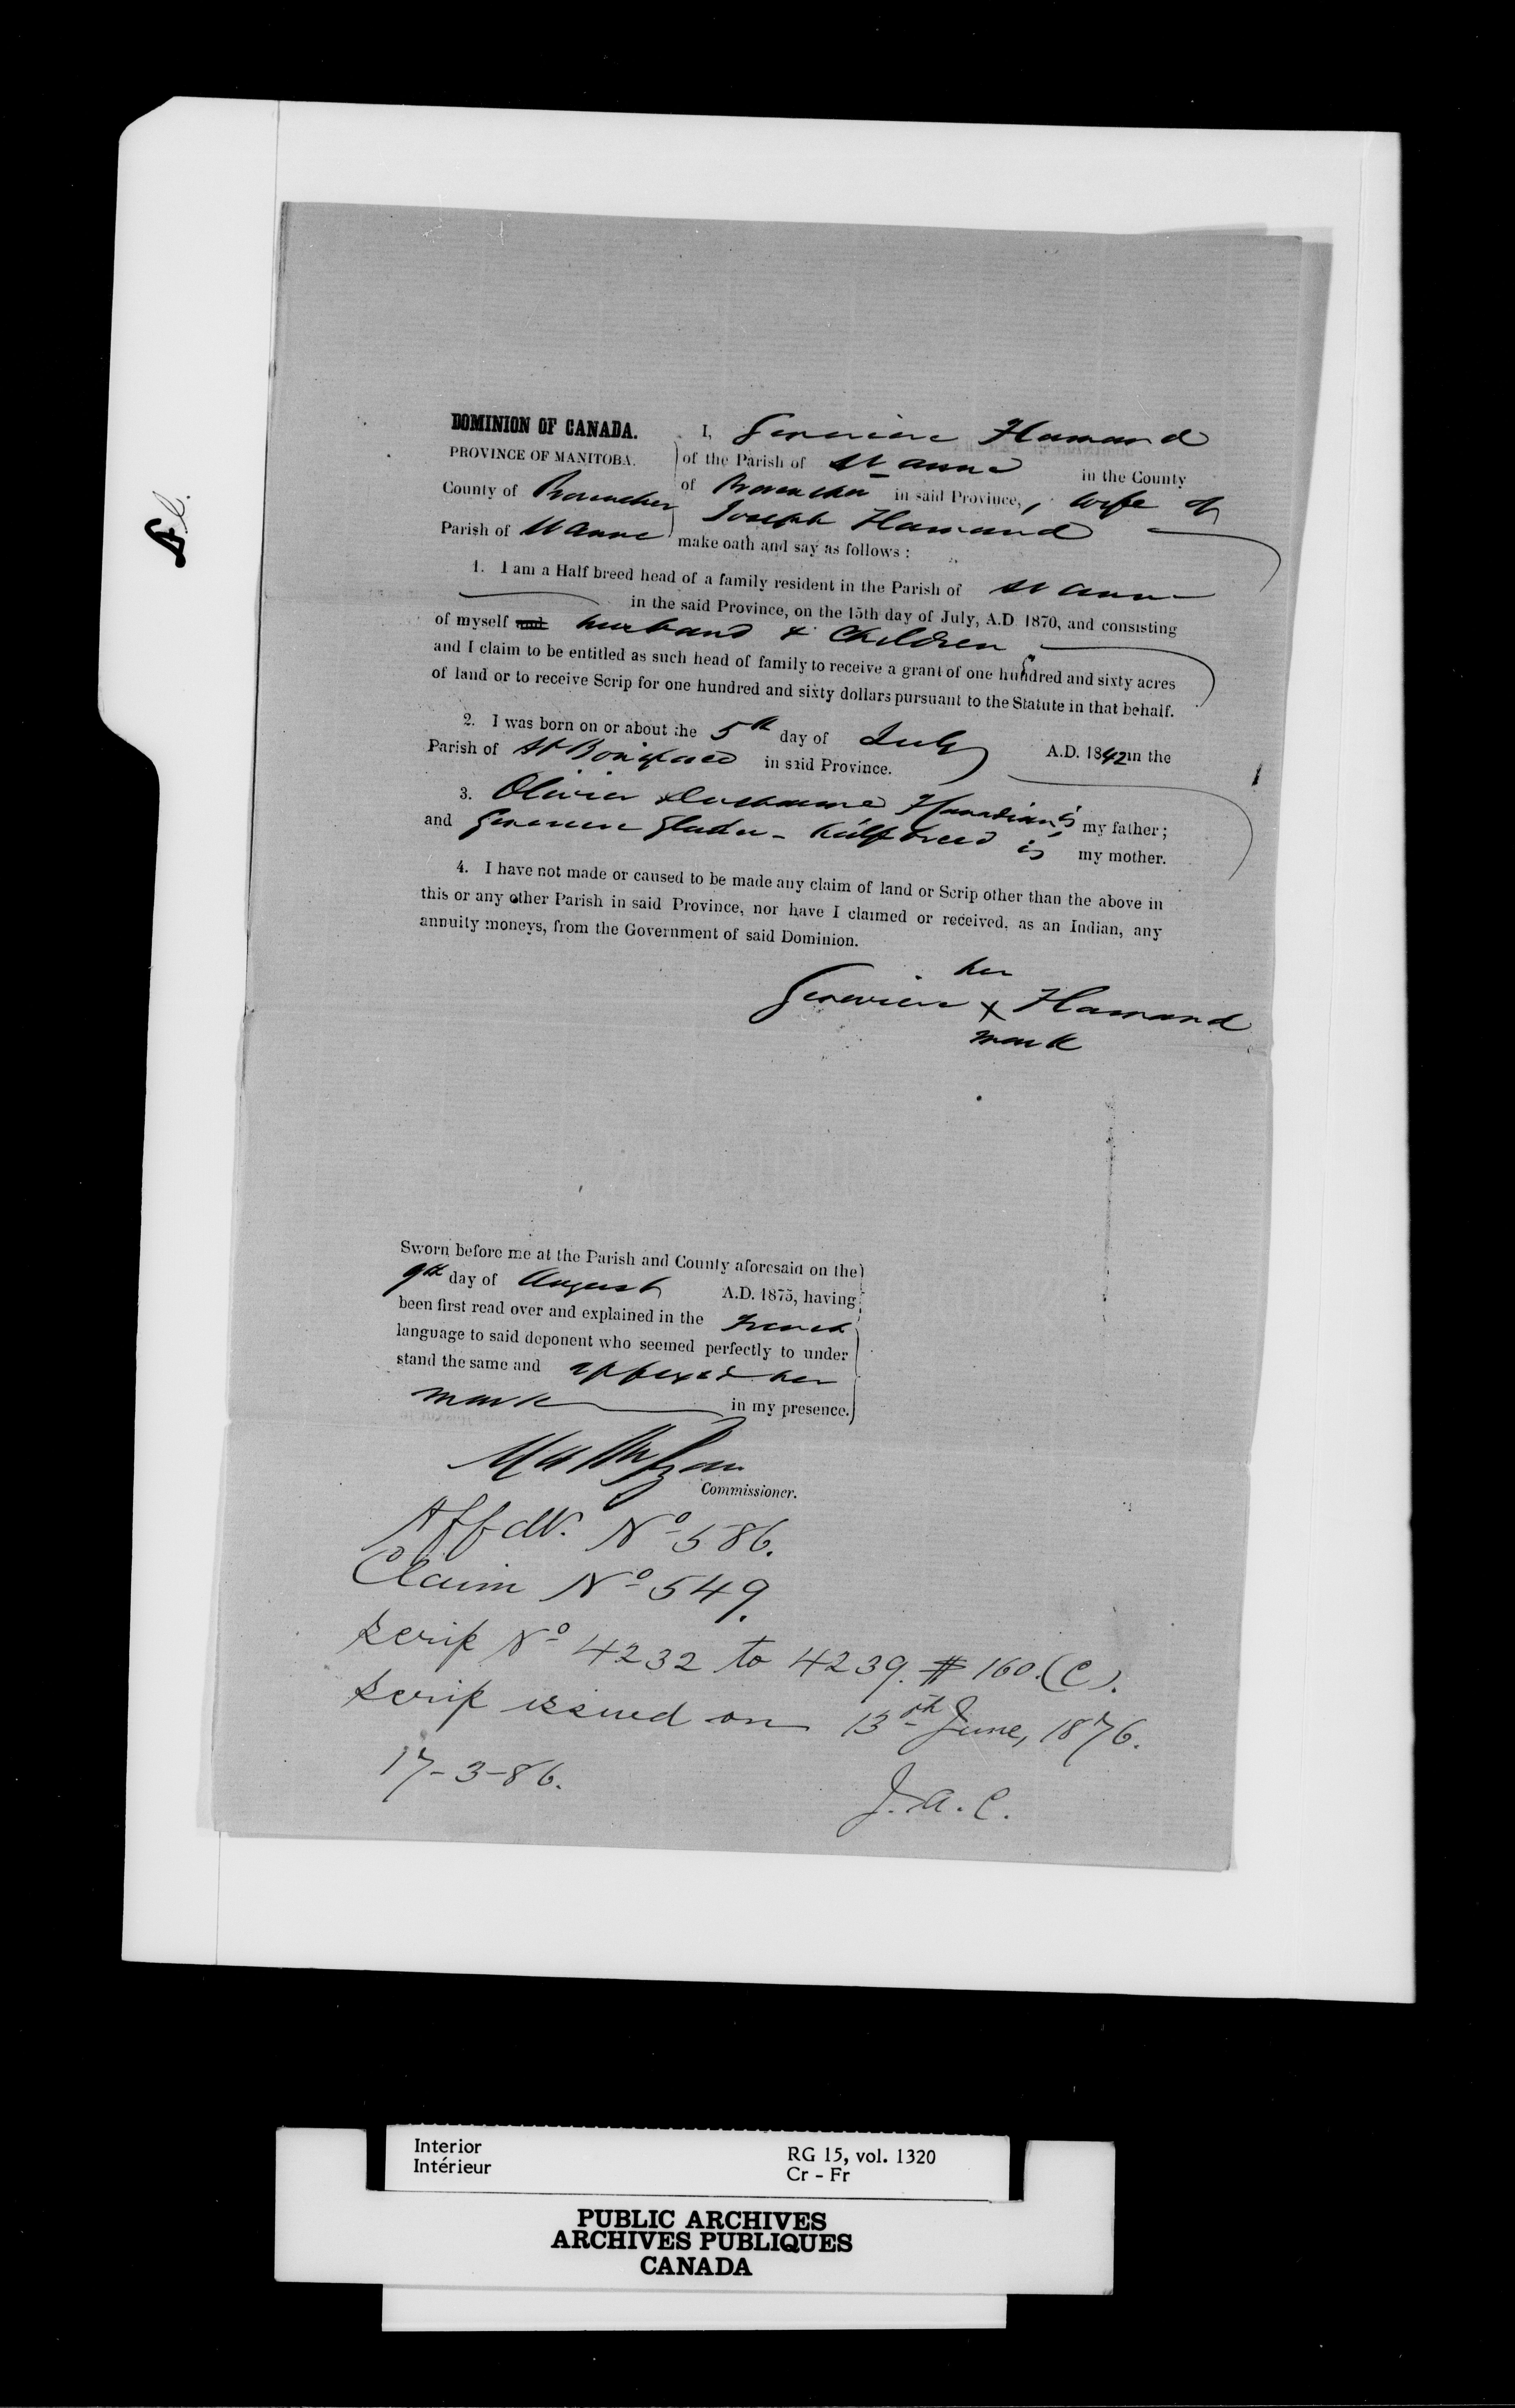 DOMINION OF CANADA.
PROVINCE OF MANITOBA.
County of Provencher
Parish of St Anne
I, Genevieve Hamand
of the Parish of St Anne in the County
of Provencher in said Province, wife of
Joseph Hamand
make oath and say as follows :
1. I am a Half breed head of a family resident in the Parish of St Anne
in the said Province, on the 15th day of July, A.D 1870, and consisting
of myself and husband & children
and I claim to be entitled as such head of family to receive a grant of one hundred and sixty acres
of land or to receive Scrip for one hundred and sixty dollars pursuant to the Statute in that behalf.
2. I was born on or about the 5th day of July A.D. 1842 in the
Parish of St Boniface in said Province.
3. Olivier Ducharme is my father;
and Genevieve Halfbreed is my mother.
4. I have not made or caused to be made any claim of land or Scrip other than the above in
this or any other Parish in said Province, nor have I claimed or received, as an Indian, any
annuity moneys, from the Government of said Dominion.
her
Genevieve x Hamand
mark
Sworn before me at the Parish and County aforesaid on the
9th day of August A.D. 1875, having
been first read over and explained in the French
language to said deponent who seemed perfectly to under
stand the same and affixed her
mark in my presence.
Commissioner.
Affdvt. No 586.
Claim No 549.
Scrip No 4232 to 4239. $ 160. (C).
Scrip issued on 13th June, 1876.
17-3-86.
J.A.C.
Interior
Intérieur
RG 15, vol. 1320
Cr - Fr
PUBLIC ARCHIVES
ARCHIVES PUBLIQUES
CANADA